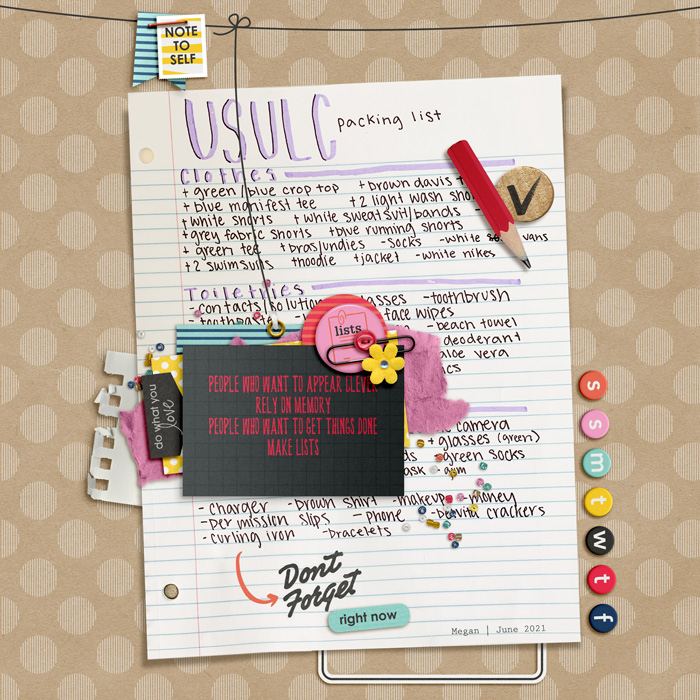 NOTE
TO
SELF
USULC packing list
Clothes
+ green/blue crop top + brown davis
+ blue manifest tee + 2 light wash
+ white shorts + white sweatsuit/bands -
+ grey fabric shorts + blue running shorts
+ green tee + bras/undies - socks - white vans
+ 2 swimsuits + hoodie + jacket - white nikes
Toiletries
- contacts/solution glasses - toothbrush
- toothpaste face wipes
- beach towel
deodorant
aloe vera
lists
PEOPLE WHO WANT TO APPEAR CLEVER
RELY ON MEMORY
PEOPLE WHO WANT TO GET THINGS DONE
MAKE LISTS
do what you
love
camera
+ glasses (green)
- green socks
- gum
- charger - brown shirt - makeup - money
- permission slips - phone crackers
- curling iron - bracelets
Don't
Forget
right now
Megan | June 2021
s
s
m
t
w
t
f